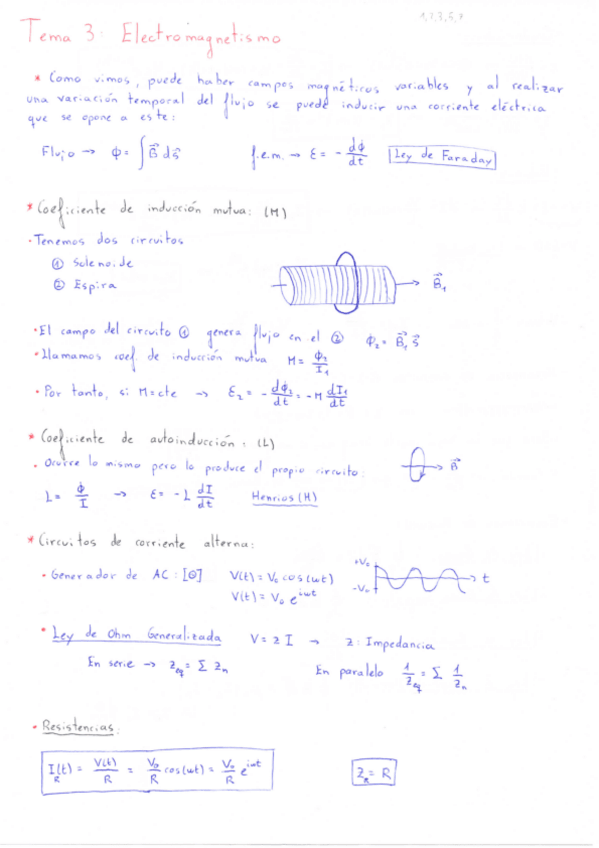 1,2,3,5,7
Tema 3: Electromagnetismo
* Como vimos, puede haber campos magnéticos variables y al realizar
una variación temporal del flujo se puede inducir una corriente eléctrica
que se opone a este:
Flujo → Φ = ∫ B⃗ ds⃗    f.e.m. → Ɛ = - dΦ/dt    Ley de Faraday
* Coeficiente de inducción mutua: (M)
· Tenemos dos circuitos
① Solenoide
② Espira
B⃗₁
· El campo del circuito ① genera flujo en el ②    Φ₂ = B⃗₁ S⃗
· Llamamos coef. de inducción mutua M = Φ₂/I₁
· Por tanto, si M=cte → Ɛ₂ = - dΦ₂/dt = -M dI₁/dt
* Coeficiente de autoinducción: (L)
· Ocurre lo mismo pero lo produce el propio circuito:
B⃗
L = Φ/I → Ɛ = -L dI/dt    Henrios (H)
* Circuitos de corriente alterna:
· Generador de AC: [Θ]    V(t) = V₀ cos(ωt)
V(t) = V₀ e^iωt
+V₀
-V₀
t
· Ley de Ohm Generalizada    V = Z I → Z: Impedancia
En serie → Z_eq = Σ Z_n    En paralelo 1/Z_eq = Σ 1/Z_n
· Resistencias:
I_R(t) = V(t)/R = V₀/R cos(ωt) = V₀/R e^iωt    Z_R = R